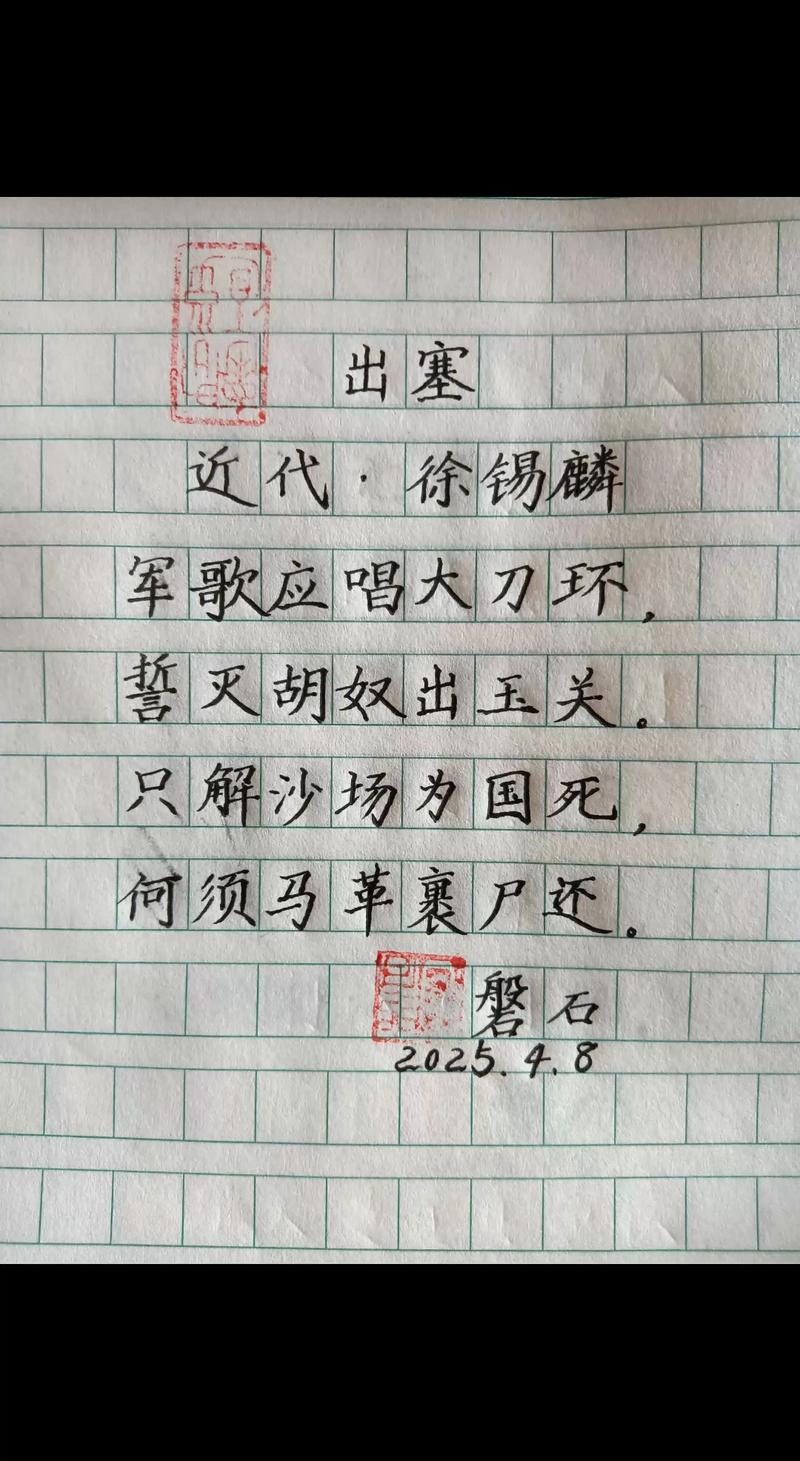 出塞
近代·徐锡麟
军歌应唱大刀环，
誓灭胡奴出玉关。
只解沙场为国死，
何须马革裹尸还。
磐石
2025.4.8